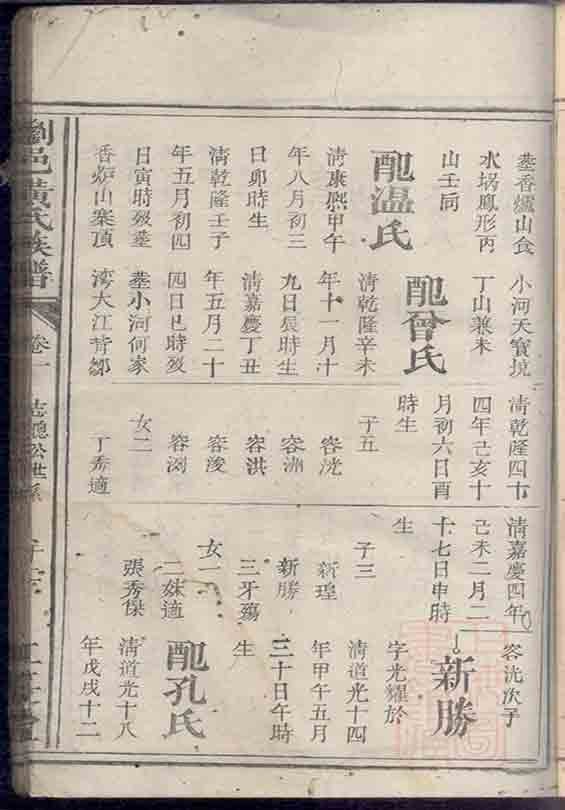 墓香爐山食
水堝鳳形丙
山壬向
配溫氏
清康熙甲午
年八月初三
日卯時生
清乾隆壬子
年五月初四
日寅時歿墓
香炉山寨頂
小河天寶坑
丁山兼未
配曾氏
清乾隆辛未
年十一月十
九日辰時生
清嘉慶丁丑
年五月二十
四日巳時歿
墓小河何家
湾大江背鄒
清乾隆四十
四年己亥十
月初六日酉
時生
子五
容洸
容洲
容洪
容浚
容浏
女二
丁秀適
清嘉慶四年
己未二月二
十七日申時
生
子三
新瑝
新勝
三牙殤
女一
二妹適
張秀保
容洸次子
新勝
字光耀於
清道光十四
年甲午五月
三十日午時
生
配孔氏
清道光十八
年戊戌十二
劉邑黃氏族譜
卷一
志聰公世系